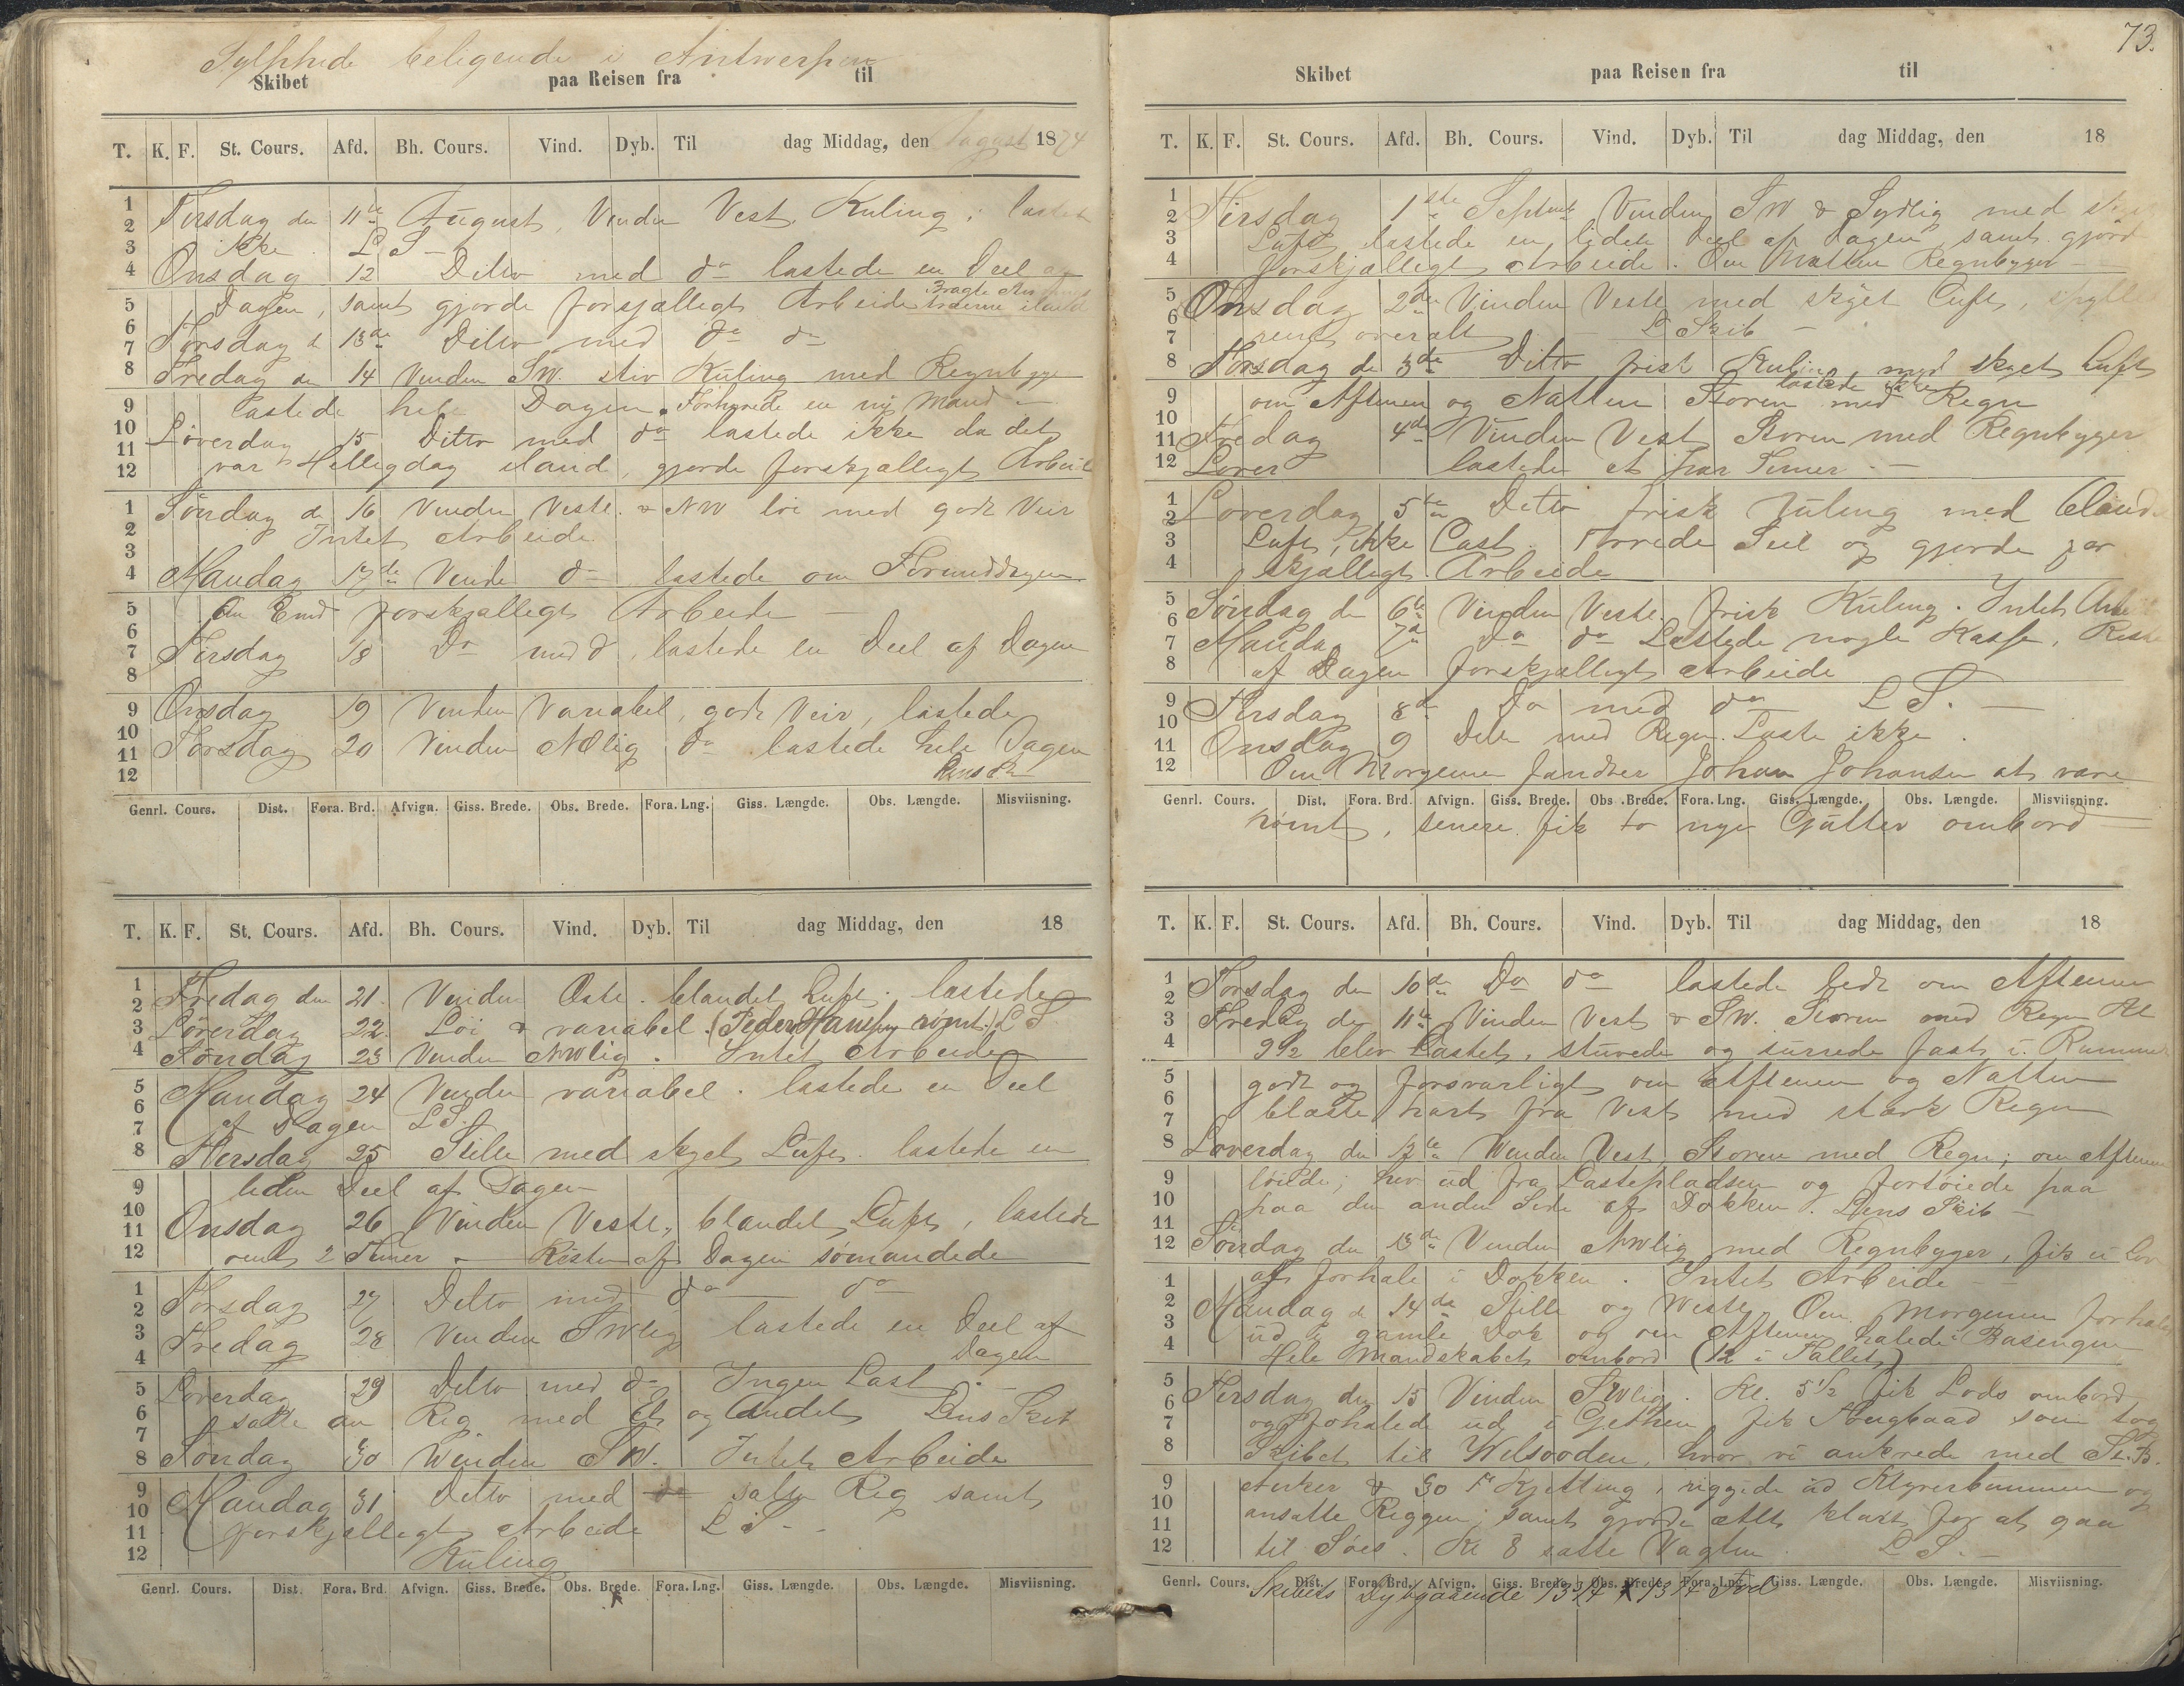 Sylphide beligende i Antwerpen
Skibet paa Reisen fra til
T. K. F. St. Cours. Afd. Bh. Cours. Vind. Dyb. Til dag Middag, den August 1874
1 2 Tirsdag den 11te August, Vinden Vest. Kuling, lastet
3 ikke. L S -
4 Onsdag 12 Ditto med do lastede en Deel af
Bragte
5 Dagen, samt gjorde forsjælligt Arbeide træerne iland
6 7 Torsdag d 13de Ditto med do do
8 Fredag den 14 Vinden SW. stiv Kuling med Regnbyge
9 lastede hele Dagen. Forhyrede en ny Mand -
10 Löverdag 15 Ditto med do lastede ikke da det
11 12 var Helligdag iland, gjorde forskjælligt Arbeide
1 Söndag d 16 Vinden Vestl. & NW löi med godt Veir
2 3 Intet Arbeide
4 Mandag 17de Vinden do lastede om Formiddagen
5 Om Emd forskjælligt Arbeide
6 7 8 Tirsdag 18 Do med d, lastede en Deel af Dagen
9 Onsdag 19 Vinden Variabel, godt Veir, lastede
10 11 Torsdag 20 Vinden NOlig do lastede hele Dagen
12 Lens Sk
Genrl. Cours. Dist. Fora. Brd. Afvign. Giss. Brede. Obs. Brede. Fora. Lng. Giss. Længde. Obs. Længde. Misviisning.
T. K. F. St. Cours. Afd. Bh. Cours. Vind. Dyb. Til dag Middag, den 18
1 2 Fredag den 21. Vinden Østl. blandet Luft. lastede
3 Löverdag 22. Löi & variabel. (Peder Hansen römt.) L S
4 Söndag 23 Vinden NWlig. Intet Arbeide
5 6 Mandag 24 Vinden variabel. lastede en Deel
7 af Dagen L S.
8 Tirsdag 25 Stille med skyet Luft. lastede en
9 liden Deel af Dagen
10 11 Onsdag 26 Vinden Vestl., blandet Luft, lastede
12 omt 2 Timer - Resten af Dagen sömandede
1 2 Torsdag 27 Ditto med do do
3 Fredag 28 Vinden SWlig lastede en Deel af
4 Dagen
5 Löverdag 29 Ditto med do Ingen Last. -
6 7 satte an Rig med Et og Andet Lens Skib
8 Söndag 30 Winden SW. Intet Arbeide
9 10 Mandag 31 Ditto med do satte Rig samt
11 forskjælligt Arbeide L S -
12 Kuling
Genrl. Cours. Dist. Fora. Brd. Afvign. Giss. Brede. Obs. Brede. Fora. Lng. Giss. Længde. Obs. Længde. Misviisning.
73.
Skibet paa Reisen fra til
T. K. F. St. Cours. Afd. Bh. Cours. Vind. Dyb. Til dag Middag, den 18
1 2 Tirsdag 1ste Septmb Vinden SW & Sydlig med
3 Luft, lastede en liden Deel af Dagen, samt gjord
4 forskjælligt Arbeide. Om Natten Regnbyger
5 6 Onsdag 2den Vinden Vestl med skyet Luft,
7 rent overalt L Skib -
8 Torsdag de 3de Ditto frisk Kuling, med skyet Luft
lastede ikke
9 om Aftenen og Natten Storm med Regn
10 11 Fredag 4de Vinden Vest Storm med Regnbyger
12 Lover lastede et par Timer. -
1 2 Löverdag 5te Ditto frisk Kuling med bland
3 Luft, ikke Last. Törrede Seil og gjorde for
4 skjælligt Arbeide
5 6 Söndag de 6te Vinden Vestl. frisk Kuling. Intet Arbei
7 Mandag 7de do do Lastede nogle Kasse, Reste
8 af Dagen forskjælligt Arbeide
9 10 Tirsdag 8de Do med do L S. -
11 Onsdag 9 Dito med Regn. Laste ikke.
12 Om Morgenen fandtes Johan Johansen at være
Genrl. Cours. Dist. Fora. Brd. Afvign. Giss. Brede. Obs. Brede. Fora. Lng. Giss. Længde. Obs. Længde. Misviisning.
römt, senere fik to nye Gutter ombord
T. K. F. St. Cours. Afd. Bh. Cours. Vind. Dyb. Til dag Middag, den 18
1 2 Torsdag den 10de Do do lastede lidt om Aftenen
3 Fredag de 11te Vinden Vest & SW. Storm med Regn Kl
4 9 1/2 blev Lastet, stuvede og surrede fast i Rummet
5 godt og forsvarligt om Aftenen og Natten
6 7 blæste hart fra Vest med stærk Regn
8 Löverdag den 12te Winden Vest Storm med Regn; om Aftenen
9 löiede; hev ud fra Lastepladsen og fortöiede paa
10 paa den anden Side af Dokken. Lens Skib -
11 12 Söndag den 13de Vinden NWlig med Regnbyger, fik ei Lov
1 at forhale i Dokken. Intet Arbeide -
2 3 Mandag d 14de Stille og Westl. Om Morgenen forhalede
4 ud i gamle Dok og om Aftenen halede i Basengen
Hele Mandskabet ombord (12 i Tallet)
5 6 Tirsdag den 15 Vinden SWlig. Kl. 5 1/2 fik Lods ombord
7 og forhalede ud i Gethen fik Bougbaad som tog
8 Skibet til Wilsooden, hvor vi ankrede med St. B.
9 Anker & 30 F Kjetting, riggede ud Klyverbummen og
10 11 ansatte Riggen; samt gjorde Alt klart for at gaa
12 til Söes. Kl 8 satte Vagten L S. -
Genrl. Cours. Dist. Fora. Brd. Afvign. Giss. Brede. Obs. Brede. Fora. Lng. Giss. Længde. Obs. Længde. Misviisning.
Skibets Dybgaaende 13 3/4 x 13 1/4 Fod